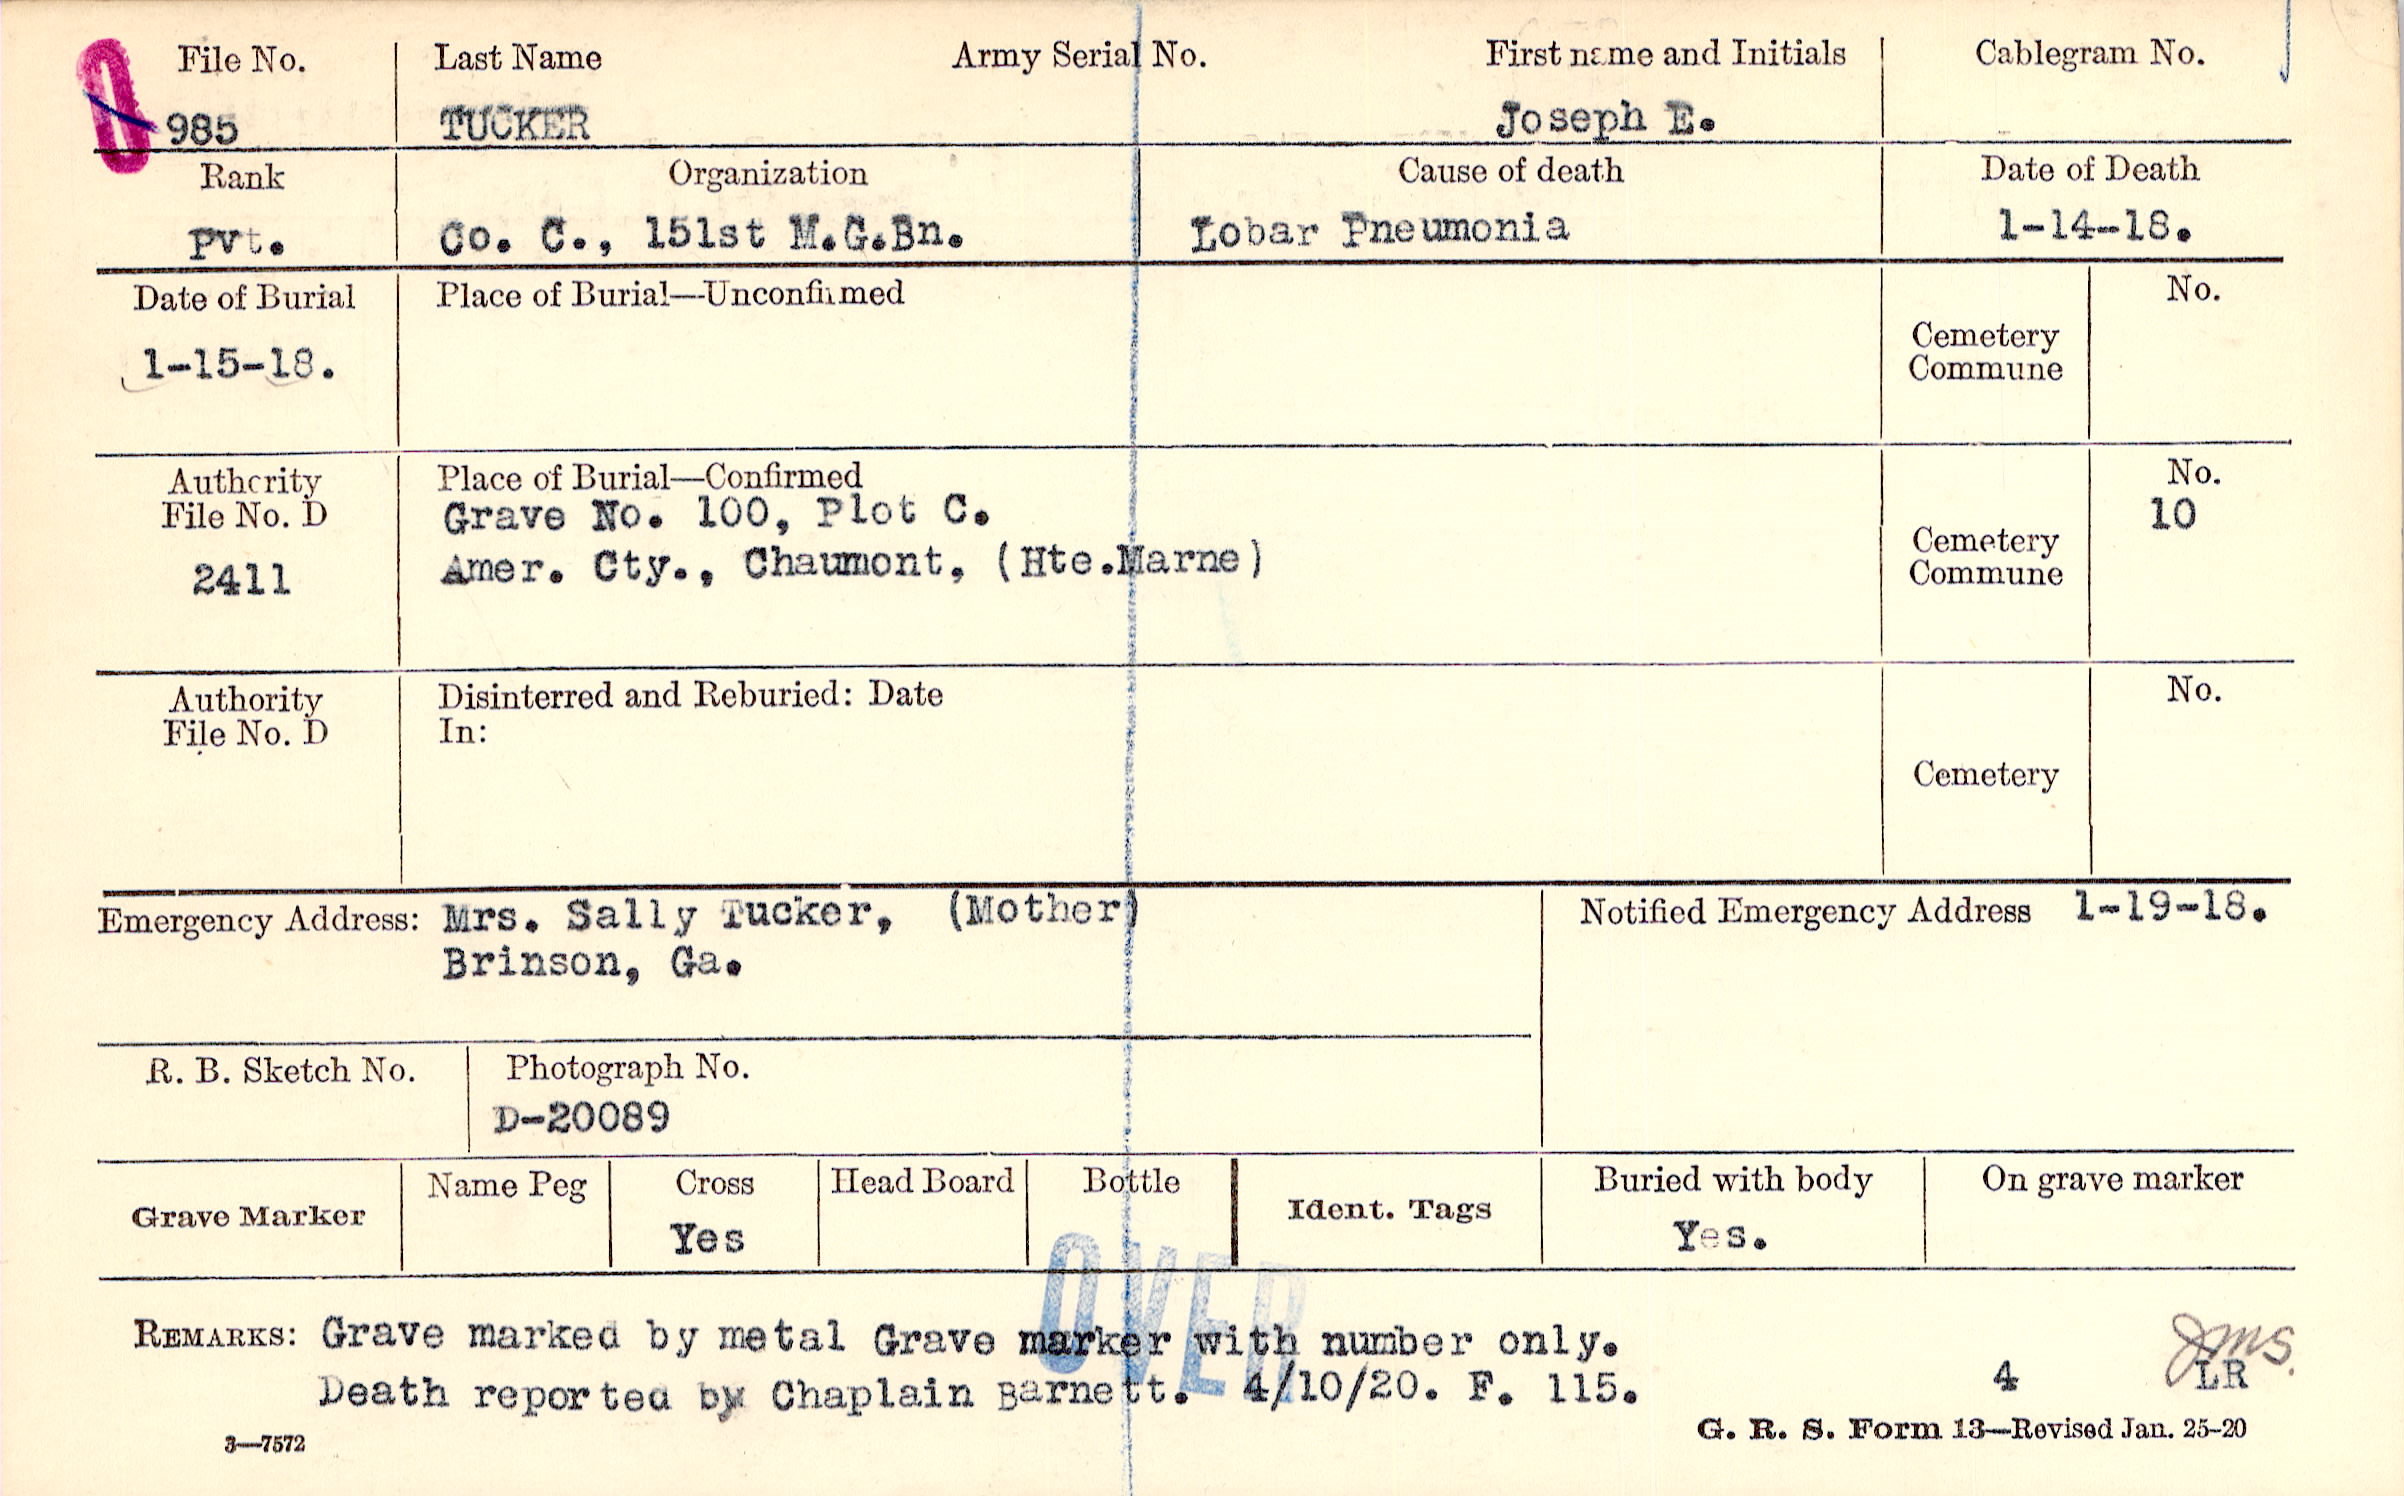 File No. Last Name Army Serial No. First name and Initials Cablegram No.
0 985 TUCKER Joseph E.
Rank Organization Cause of death Date of Death
Pvt. Co. C., 151st M.G.Bn. Lobar Pneumonia 1-14-18.
Date of Burial Place of Burial—Unconfirmed No.
Cemetery
Commune
1-15-18.
Authority Place of Burial—Confirmed No.
File No. D Grave No. 100, Plot C. 10
2411 Amer. Cty., Chaumont, (Hte.Marne) Cemetery
Commune
Authority Disinterred and Reburied: Date No.
File No. D In:
Cemetery
Emergency Address: Mrs. Sally Tucker, (Mother) Notified Emergency Address 1-19-18.
Brinson, Ga.
R. B. Sketch No. Photograph No.
D-20089
Grave Marker Name Peg Cross Head Board Bottle Ident. Tags Buried with body On grave marker
Yes Yes.
OVER
REMARKS: Grave marked by metal Grave marker with number only.
Death reported by Chaplain Barnett. 4/10/20. F. 115. 4 LR
JMS.
3—7572 G. R. S. Form 13—Revised Jan. 25-20